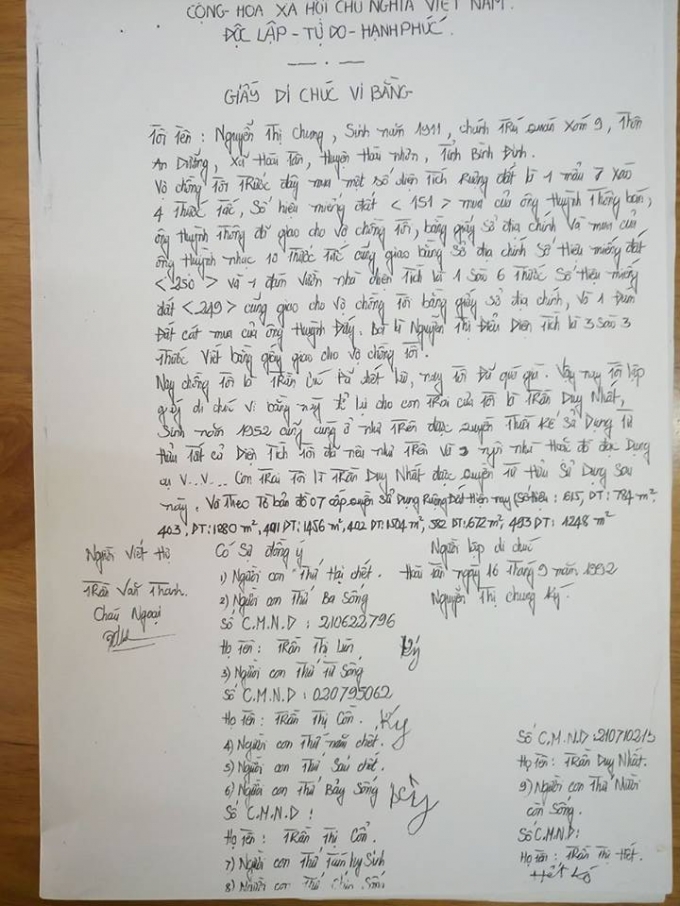 CỘNG-HOA XA HỘI CHỦ NGHĨA VIỆT NAM.
ĐỘC LẬP-TỰ DO-HẠNH PHÚC.
GIẤY DI CHÚC VI BẰNG
Tôi tên: Nguyễn Thị Chung, Sinh năm 1911, chánh Trú quán Xóm 9, Thôn
An Dưỡng, Xã Hoài Tân, Huyện Hoài nhơn, Tỉnh Bình Định.
Vợ chồng Tôi Trước đây mua một số diện Tích Ruộng đất là 1 mẩu 7 Xào
4 Thước Tắc, Số hiệu miếng đất <151> mua của ông Huỳnh Thông bán,
ông Huỳnh Thông đã giao cho vợ chồng Tôi, bằng giấy Sổ địa chính Và mua của
ông Huỳnh nhục 10 Thước Tắc cũng giao bằng Sổ địa chính Số Hiệu miếng đất
<250> và 1 đám vườn nhà diện Tích là 1 Sào 6 Thước Số Hiệu miếng
đất <249> cũng giao cho Vợ chồng Tôi bằng giấy sổ địa chính, Và 1 Đám
Đất cát mua của ông Huỳnh Đấy. Bà là Nguyễn Thị Điểu Diện Tích là 3 Sào 3
Thước Viết bằng giấy giao cho vợ chồng Tôi.
Nay chồng Tôi là Trần Cúc đã chết rồi, nay Tôi Đã già. Vậy nay Tôi lập
giấy di chúc vi bằng này để lại cho con Trai của Tôi là Trần Duy Nhất,
Sinh năm 1952 cũng cùng ở như Trên được quyền Thừa Kế Sử Dụng Tư
Hữu Tất cả Diện Tích Tôi đã nêu như Trên Và ngôi nhà Hoặc đồ đạc Dụng
cụ V...V... Con Trai Tôi là Trần Duy Nhất được quyền Tư Hữu Sử Dụng Sau
này. Và Theo Tờ bản đồ 07 cấp quyền Sử Dụng Ruộng Đất Hiện nay (Số hiệu: 615, DT: 784 m²
403, DT: 1080 m², 491 DT: 1456 m², 402 DT: 1504 m², 582 DT: 672 m², 493 DT: 1248 m²
Người Viết Hộ
Trần Văn Thanh.
Cháu Ngoại
Có Sự đồng ý
1) Người con Thứ Hai chết.
2) Người con Thứ Ba Sống
Số C.M.N.D: 210622796
Họ Tên: Trần Thị Lún
Ký
3) Người con Thứ Tư Sống
Số C.M.N.D: 020795062
Họ Tên: Trần Thị Cồn.
Ký
4) Người con Thứ năm chết.
5) Người con Thứ Sáu chết.
6) Người con Thứ Bảy Sống
Ký
Số C.M.N.D:
Họ Tên: Trần Thị Cổn.
7) Người con Thứ Tám hy Sinh
8) Người con Thứ Chín Sống
Người lập di chúc
Hoài Tân ngày 16 Tháng 9 năm 1992
Nguyễn Thị chung Ký.
Số C.M.N.D: 210710215
Họ Tên: Trần Duy Nhất.
9) Người con Thứ Mười
còn Sống.
Số C.M.N.D:
Họ Tên: Trần Thị Hết.
Hết Ký